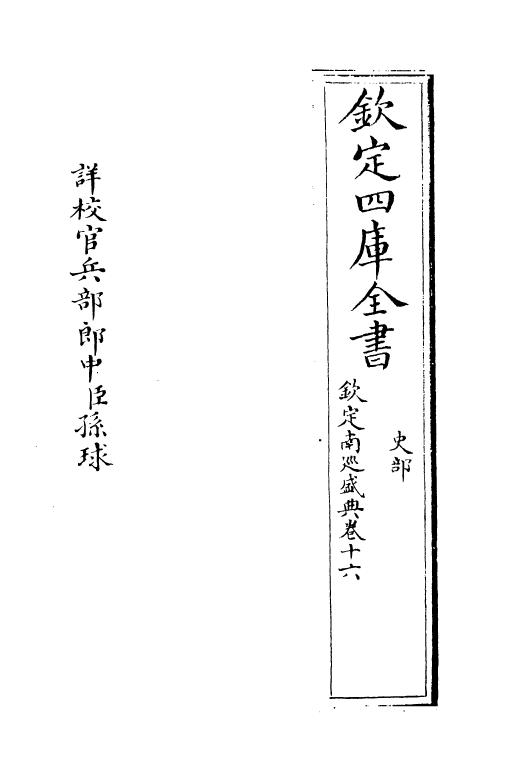 欽定四庫全書
史部
欽定南巡盛典卷十六
詳校官兵部郎中臣孫球